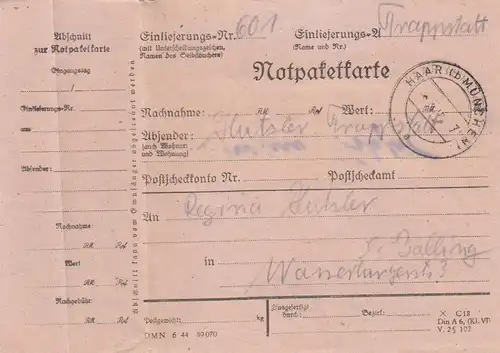 Abschnitt
zur Notpaketkarte
Eingangstag
/
Einlieferungs-Nr.
aus
Absender:
Nachnahme:
RM Rpf
Wert
RM Rpf
Nachgebühr:
RM Rpf
Abschnitt kann vom Empfänger abgetrennt werden
Einlieferungs-Nr. 601
(mit Unterscheidungszeichen,
Namen des Selbstbuchers)
Einlieferungs-A Trappstatt
(Name und Nr.)
Notpaketkarte
HAAR (b MÜNCHEN)
Nachnahme: RM Rpf Wert: RM
Absender: Hutzler Trappstatt
(auch Wohnort
und Wohnung)
Postscheckkonto Nr. Postscheckamt
An Regina Hutzler
in b. Balling
Wasserburgerstr 3
Postgewicht: kg
Ausgefertigt
durch: Bezirk:
DMN 6 44 89070
X C18
Din A 6, (Kl. VI)
V. 25 102